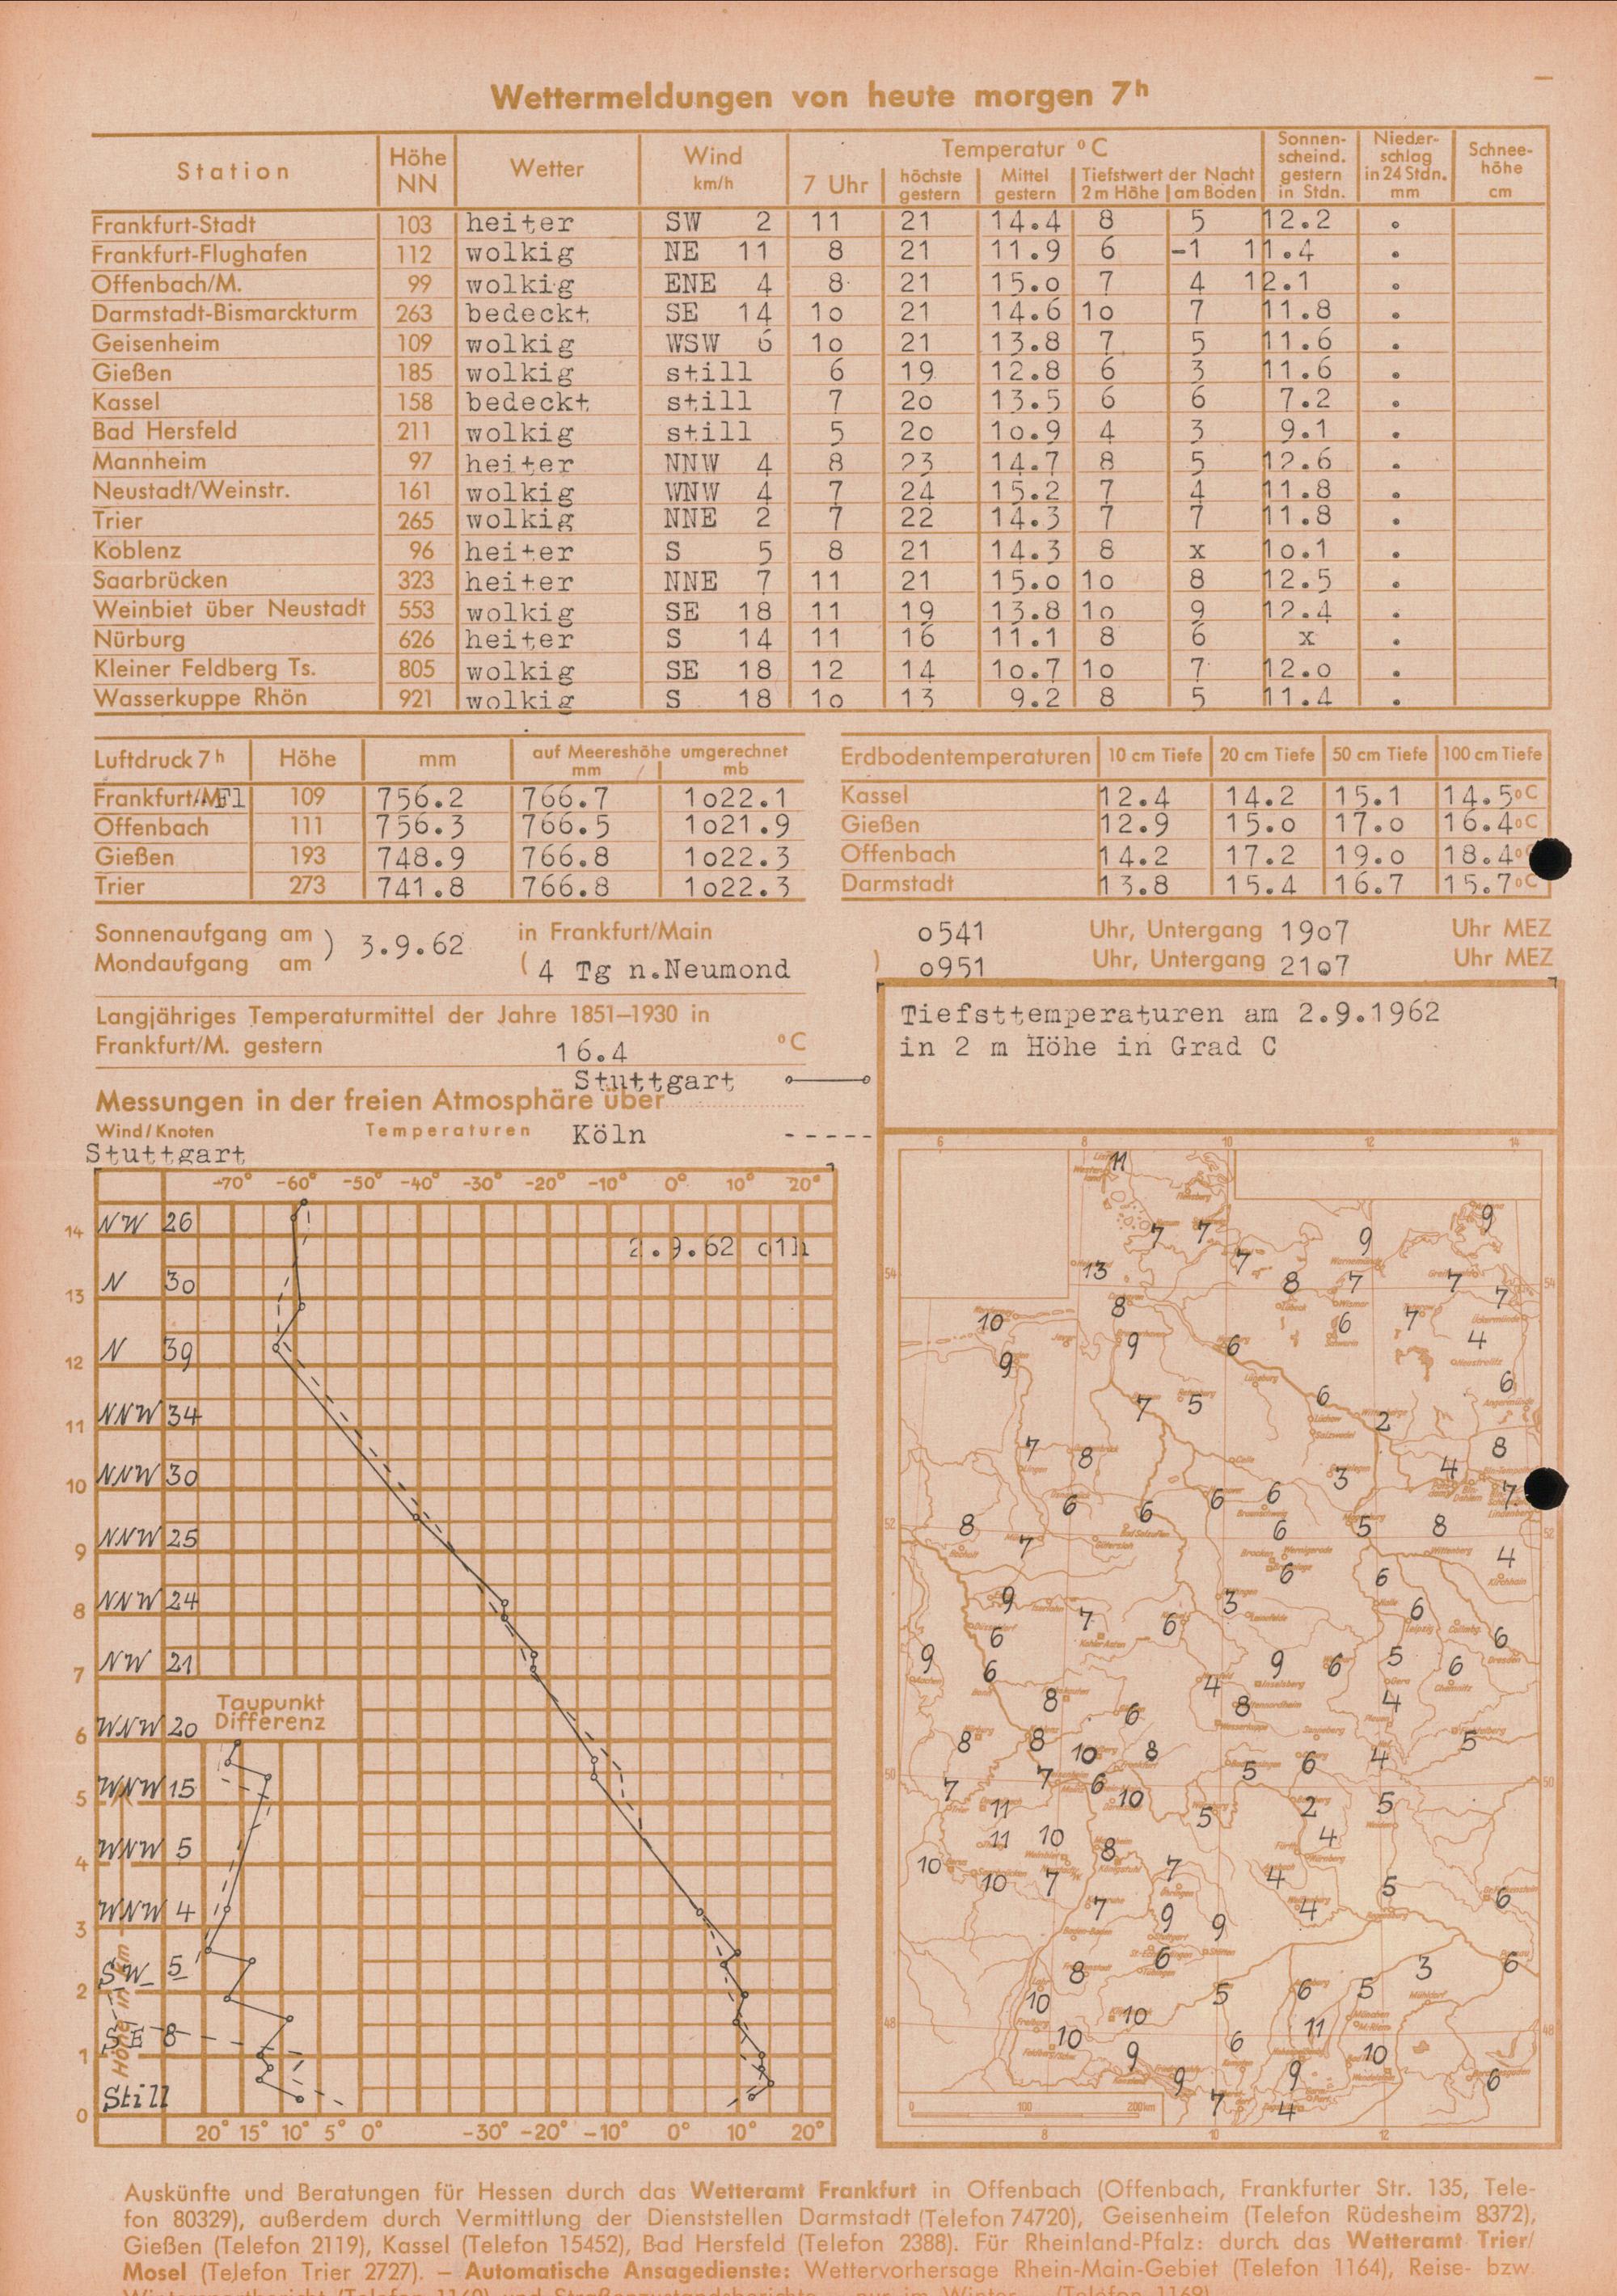 Wettermeldungen von heute morgen 7h
Station Höhe NN Wetter Wind km/h Temperatur °C Sonnenscheind. gestern in Stdn. Niederschlag in 24 Stdn. mm Schneehöhe cm
7 Uhr höchste gestern Mittel gestern Tiefstwert der Nacht 2 m Höhe am Boden
Frankfurt-Stadt 103 heiter SW 2 11 21 14.4 8 5 12.2 .
Frankfurt-Flughafen 112 wolkig NE 11 8 21 11.9 6 -1 11.4 .
Offenbach/M. 99 wolkig ENE 4 8 21 15.0 7 4 12.1 .
Darmstadt-Bismarckturm 263 bedeckt SE 14 10 21 14.6 10 7 11.8 .
Geisenheim 109 wolkig WSW 6 10 21 13.8 7 5 11.6 .
Gießen 185 wolkig still 6 19 12.8 6 3 11.6 .
Kassel 158 bedeckt still 7 20 13.5 6 6 7.2 .
Bad Hersfeld 211 wolkig still 5 20 10.9 4 3 9.1 .
Mannheim 97 heiter NNW 4 8 23 14.7 8 5 12.6 .
Neustadt/Weinstr. 161 wolkig WNW 4 7 24 15.2 7 4 11.8 .
Trier 265 wolkig NNE 2 7 22 14.3 7 7 11.8 .
Koblenz 96 heiter S 5 8 21 14.3 8 x 10.1 .
Saarbrücken 323 heiter NNE 7 11 21 15.0 10 8 12.5 .
Weinbiet über Neustadt 553 wolkig SE 18 11 19 13.8 10 9 12.4 .
Nürburg 626 heiter S 14 11 16 11.1 8 6 x .
Kleiner Feldberg Ts. 805 wolkig SE 18 12 14 10.7 10 7 12.0 .
Wasserkuppe Rhön 921 wolkig S 18 10 13 9.2 8 5 11.4 .
Luftdruck 7h Höhe mm auf Meereshöhe umgerechnet mm mb
Frankfurt/M. Fl 109 756.2 766.7 1022.1
Offenbach 111 756.3 766.5 1021.9
Gießen 193 748.9 766.8 1022.3
Trier 273 741.8 766.8 1022.3
Erdbodentemperaturen 10 cm Tiefe 20 cm Tiefe 50 cm Tiefe 100 cm Tiefe
Kassel 12.4 14.2 15.1 14.5 °C
Gießen 12.9 15.0 17.0 16.4 °C
Offenbach 14.2 17.2 19.0 18.4 °C
Darmstadt 13.8 15.4 16.7 15.7 °C
Sonnenaufgang am ) 3.9.62 in Frankfurt/Main 0541 Uhr, Untergang 1907 Uhr MEZ
Mondaufgang am ( 4 Tg n.Neumond ) 0951 Uhr, Untergang 2107 Uhr MEZ
Langjähriges Temperaturmittel der Jahre 1851–1930 in
Frankfurt/M. gestern 16.4 °C
Stuttgart
Messungen in der freien Atmosphäre über
Wind/Knoten Temperaturen Köln
Stuttgart
-70° -60° -50° -40° -30° -20° -10° 0° 10° 20°
14 NW 26
2.9.62 01h
13 N 30
12 N 39
11 NNW 34
10 NNW 30
9 NNW 25
8 NNW 24
7 NW 21
Taupunkt
Differenz
6 WNW 20
5 WNW 15
4 WNW 5
3 WNW 4
2 SW 5
1 SE 8
0 Still
Höhe in km
20° 15° 10° 5° 0° -30° -20° -10° 0° 10° 20°
Tiefsttemperaturen am 2.9.1962
in 2 m Höhe in Grad C
6 8 10 12 14
11
9
7 7 9
7
13 8 7 7 7
8
10 6 7 4
9 9 6
6
7 5 6 2
7 8 3 4 8
6 6 6 6 7
8 7 6 5 8 4
6 6
9 7 6 3 6
6 6
9 6 9 6 5 6
8 6 4 8 4
8 8 10 8 5 6 4 5
7 7 6 10
11 5 2 5
11 10 8 4
10 10 7 7 4 5
7 9 9 4 6
8 6 3 6
10 10 5 6 5
10 6 11
9 9 9 10 6
7 4
0 100 200 km
8 10 12
Auskünfte und Beratungen für Hessen durch das Wetteramt Frankfurt in Offenbach (Offenbach, Frankfurter Str. 135, Tele-
fon 80329), außerdem durch Vermittlung der Dienststellen Darmstadt (Telefon 74720), Geisenheim (Telefon Rüdesheim 8372),
Gießen (Telefon 2119), Kassel (Telefon 15452), Bad Hersfeld (Telefon 2388). Für Rheinland-Pfalz: durch das Wetteramt Trier/
Mosel (Telefon Trier 2727). – Automatische Ansagedienste: Wettervorhersage Rhein-Main-Gebiet (Telefon 1164), Reise- bzw.
Wintersportbericht (Telefon 1160) und Straßenzustandsberichte – nur im Winter – (Telefon 1169)